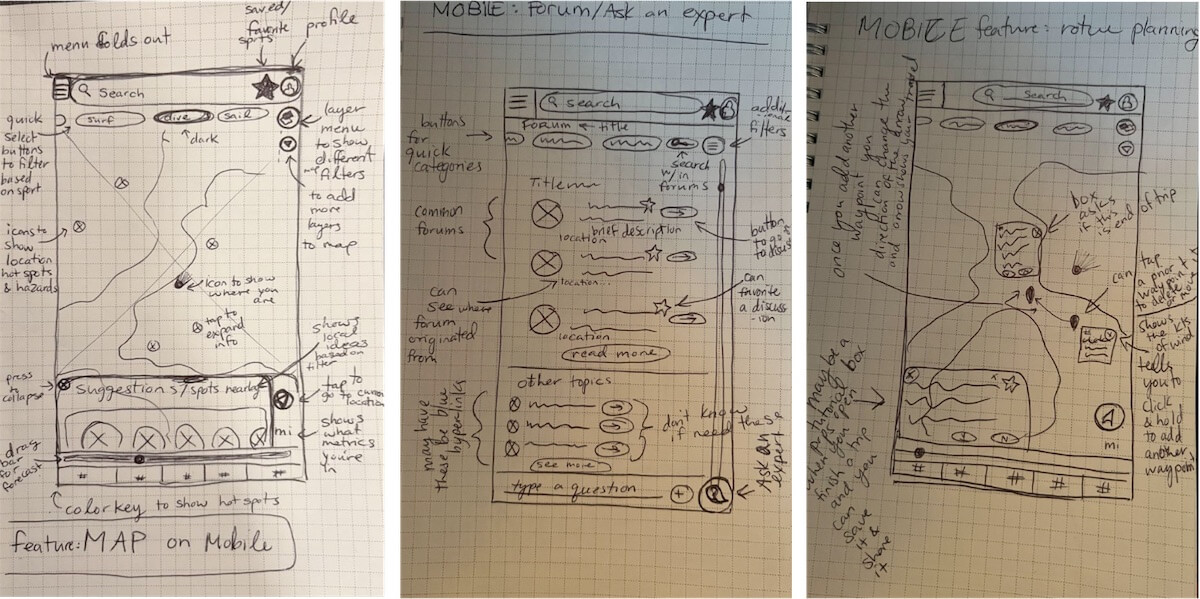 saved/
favorite
spots
profile
menu folds out
Search
quick
select
buttons
to filter
based
on sport
surf
dive
sail
dark
layer
menu
to show
different
map filters
to add
more
layers
to map
icons to
show
location
hot spots
& hazards
icon to show
where you
are
tap to
expand
info
shows
local
ideas
based on
filter
press
to
collapse
Suggestions/spots nearby
tap to
go to current
location
mi
shows
what
metrics
you're
in
drag
bar
for
forecast
# # # # #
color key to show hot spots
feature: MAP on Mobile
MOBILE: Forum/Ask an expert
Search
additi-
onal
filters
buttons
for
quick
categories
Forum ← title
search
w/in
forums
Title
common
forums
brief description
location
button
to go
to discuss
location...
can
see where
forum
originated
from
can
favorite
a discuss
-ion
location
read more
other topics
may have
these be blue
hyperlinks
don't know
if need these
see more
type a question
Ask an
expert
MOBILE feature: route planning
Search
once you add another
waypoint you
can change the
direction of the arrow
and arrow shows your travel
box
asks
if this
is end of trip
can tap
a prior
waypoint
to delete
or move
shows
the kts
of wind
tells
you to
click
& hold
to add
another
waypoint
mi
maybe a
tutorial box
when pops open
finish you
and a trip
can you
save
it &
share
it
# # # # #